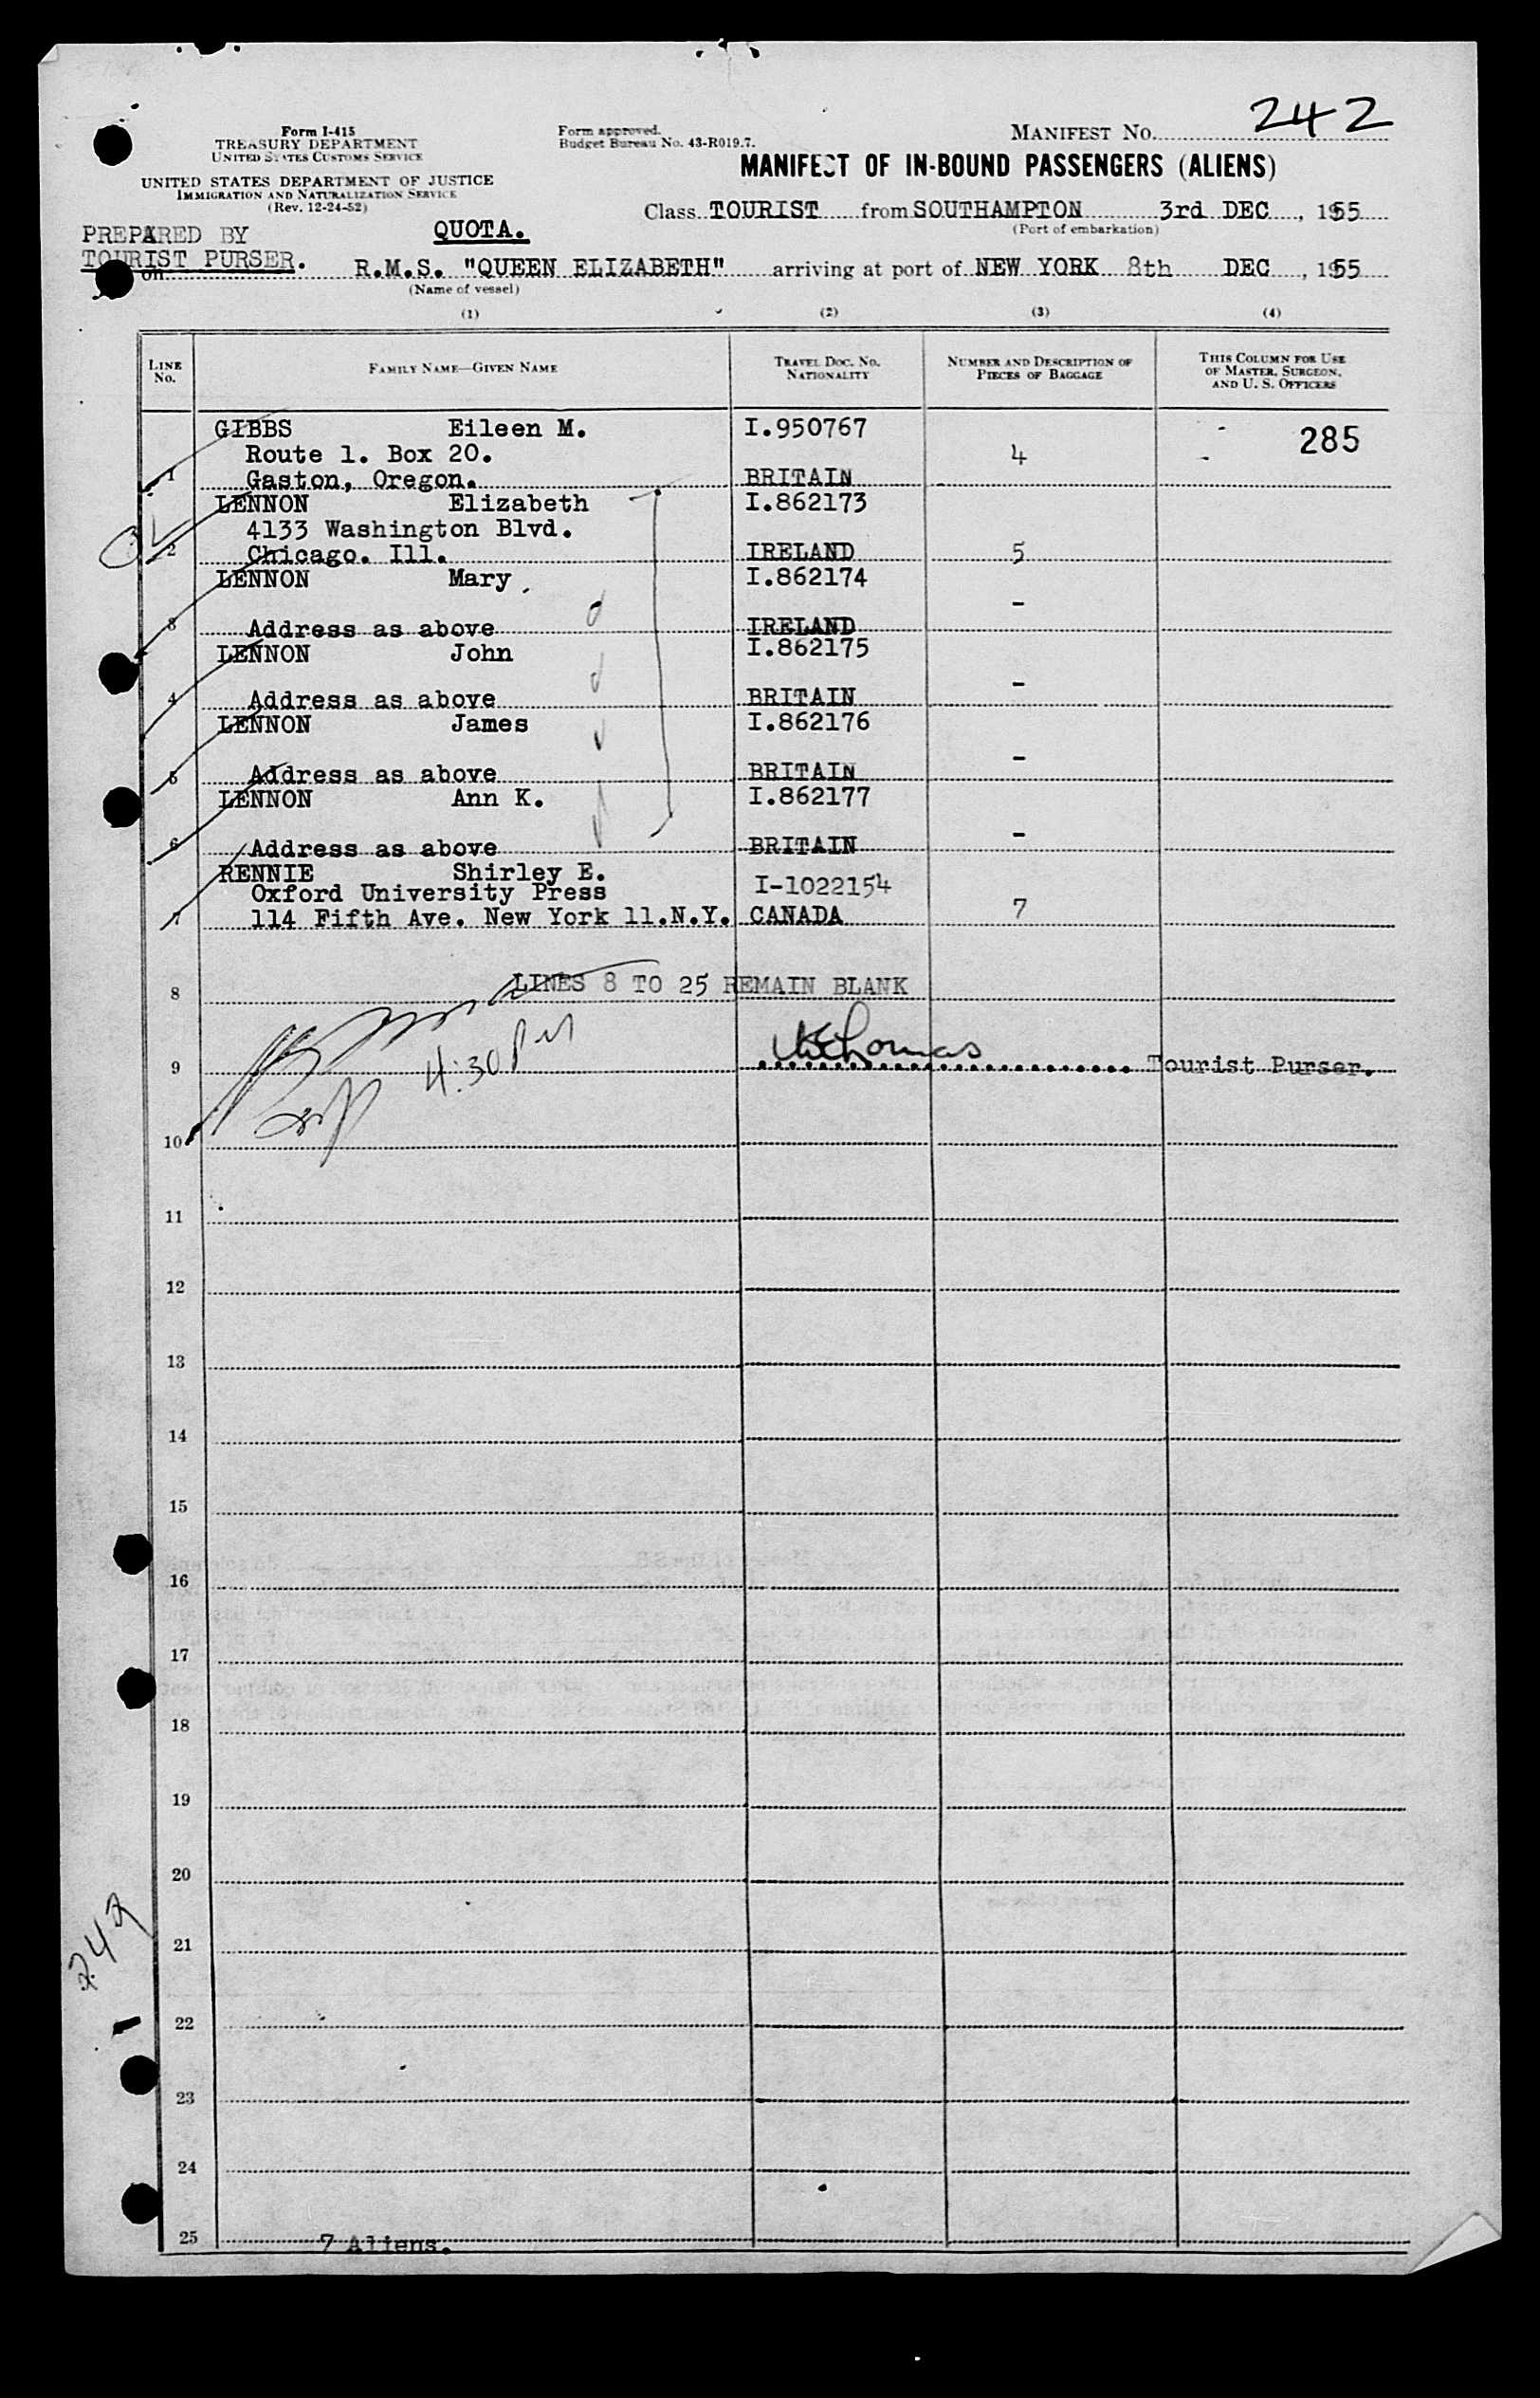 242
Form I-415
TREASURY DEPARTMENT
UNITED STATES CUSTOMS SERVICE
UNITED STATES DEPARTMENT OF JUSTICE
IMMIGRATION AND NATURALIZATION SERVICE
(Rev. 12-24-52)
Form approved.
Budget Bureau No. 43-R019.7.
MANIFEST No.
MANIFEST OF IN-BOUND PASSENGERS (ALIENS)
Class TOURIST from SOUTHAMPTON 3rd DEC, 1955
(Port of embarkation)
PREPARED BY
TOURIST PURSER.
QUOTA.
on R.M.S. "QUEEN ELIZABETH" arriving at port of NEW YORK 8th DEC, 1955
(Name of vessel)
(1) (2) (3) (4)
LINE No. FAMILY NAME—GIVEN NAME TRAVEL DOC. NO. NATIONALITY NUMBER AND DESCRIPTION OF PIECES OF BAGGAGE THIS COLUMN FOR USE OF MASTER, SURGEON, AND U. S. OFFICERS
GIBBS Eileen M. I.950767 285
Route 1. Box 20. 4
1 Gaston, Oregon. BRITAIN
LENNON Elizabeth I.862173
4133 Washington Blvd.
2 Chicago. Ill. IRELAND 5
LENNON Mary I.862174
-
3 Address as above IRELAND
LENNON John I.862175
-
4 Address as above BRITAIN
LENNON James I.862176
-
5 Address as above BRITAIN
LENNON Ann K. I.862177
-
6 Address as above BRITAIN
RENNIE Shirley E. I-1022154
Oxford University Press
7 114 Fifth Ave. New York 11.N.Y. CANADA 7
LINES 8 TO 25 REMAIN BLANK
8
4:30 PM
9 Thomas Tourist Purser.
10
11
12
13
14
15
16
17
18
19
20
242
21
22
23
24
25 7 Aliens.